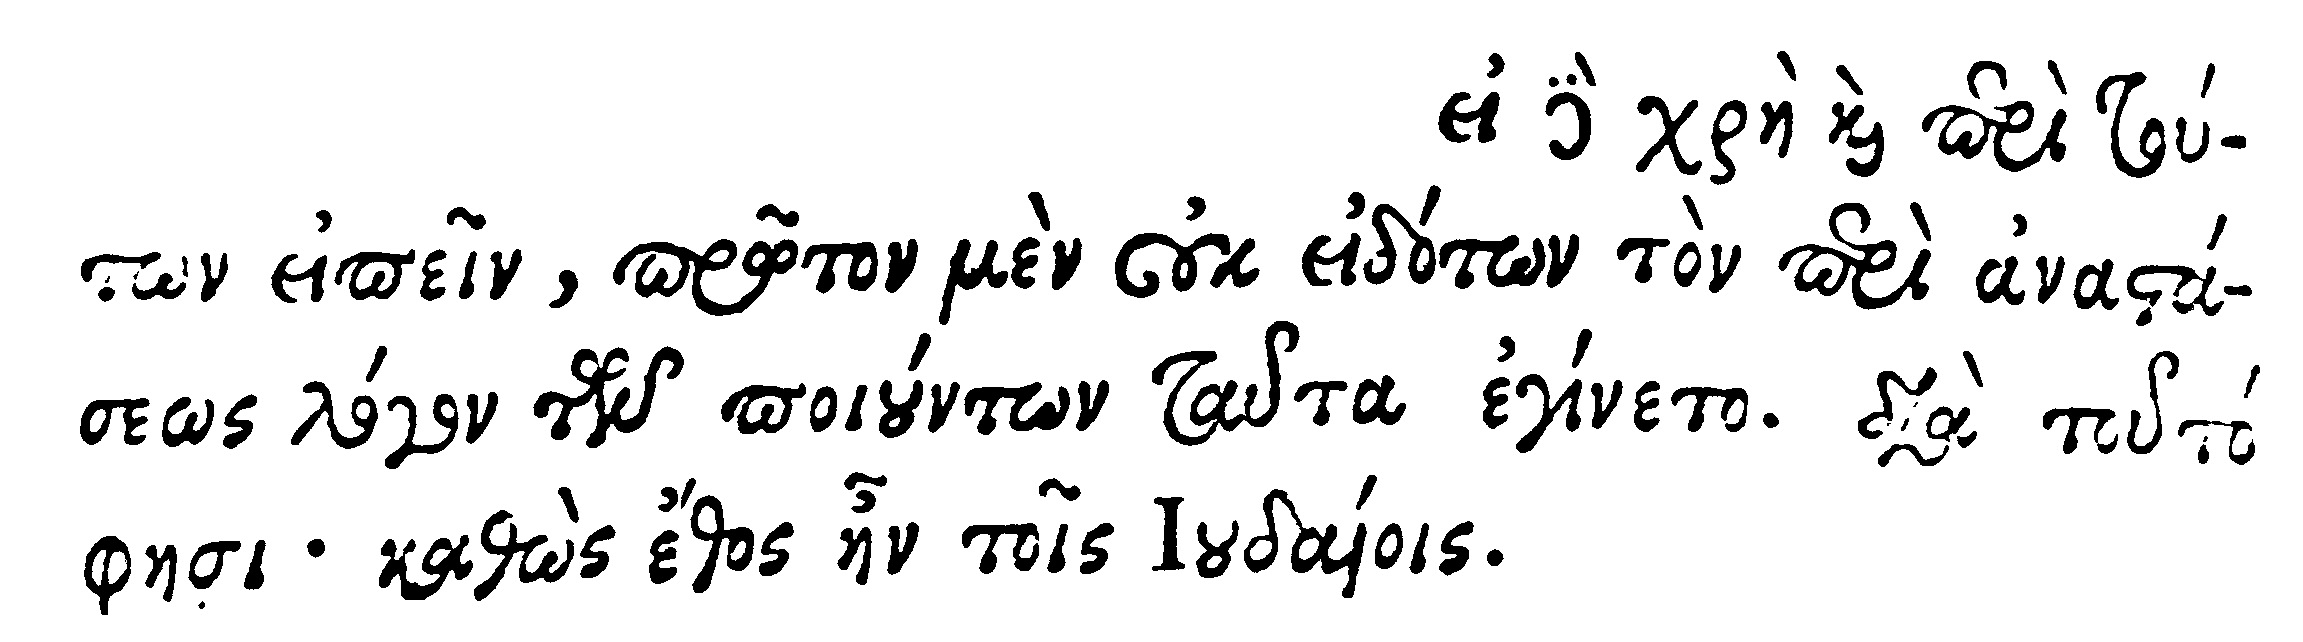 εἰ δὲ χρὴ καὶ περὶ τού-
των εἰπεῖν, πρῶτον μὲν οὐκ εἰδότων τὸν περὶ ἀναστά-
σεως λόγον τῶν ποιούντων ταῦτα ἐγίνετο. διὰ τοῦτό
φησι· καθὼς ἔθος ἦν τοῖς Ιουδαίοις.